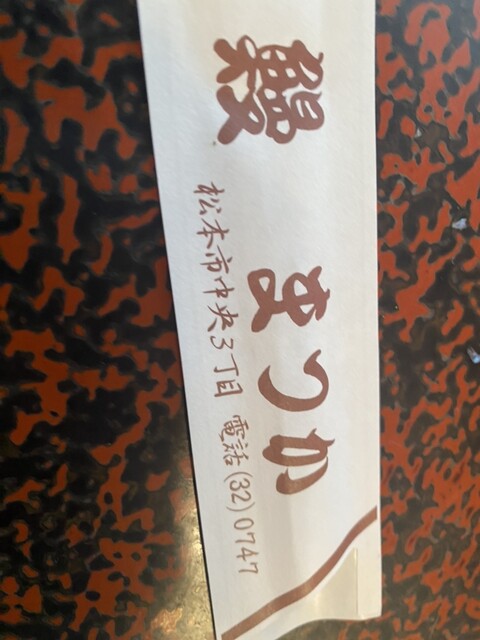 鰻
まつか
松本市中央3丁目 電話(32)0747